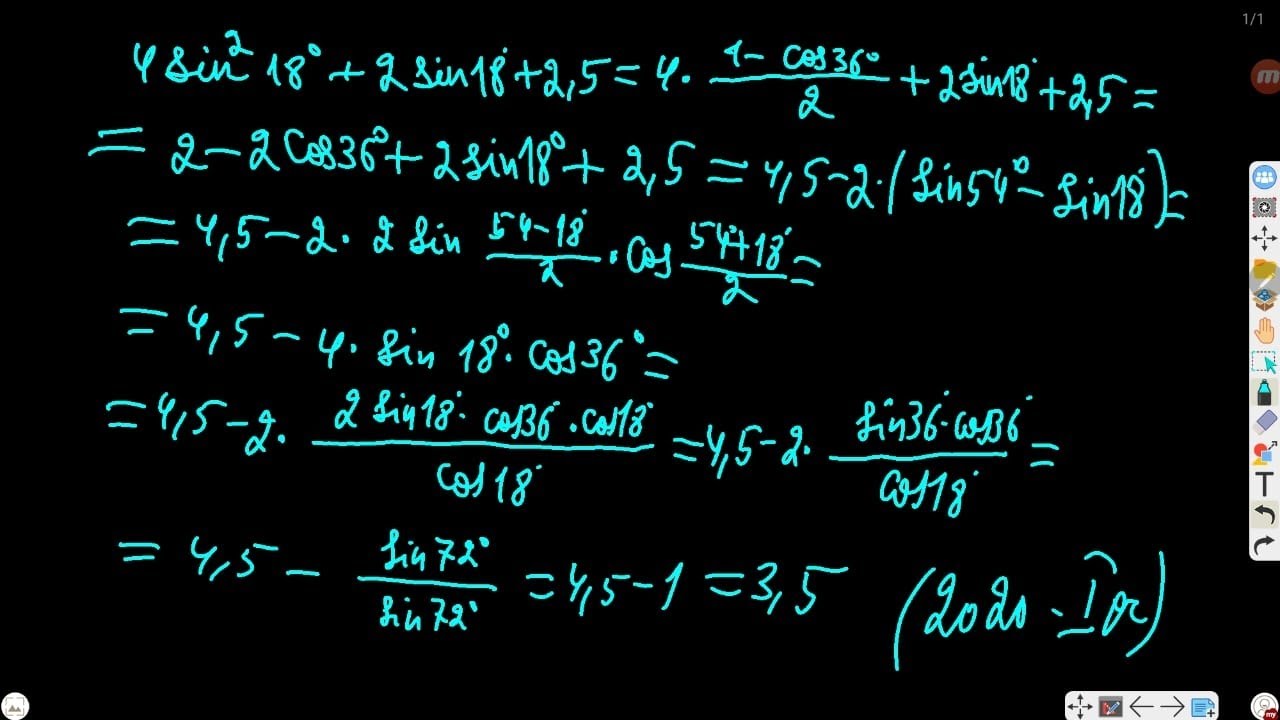 1/1
4 sin² 18° + 2 sin18° + 2,5 = 4 · (1 - cos36°)/2 + 2 sin18° + 2,5 =
= 2 - 2 cos36° + 2 sin18° + 2,5 = 4,5 - 2 · (sin54° - sin18°) =
= 4,5 - 2 · 2 sin (54° - 18°)/2 · cos (54° + 18°)/2 =
= 4,5 - 4 · sin 18° · cos36° =
= 4,5 - 2 · (2 sin18° · cos36° · cos18°)/(cos18°) = 4,5 - 2 · (sin36° · cos36°)/(cos18°) =
= 4,5 - sin72°/sin72° = 4,5 - 1 = 3,5 (2020 - I
T